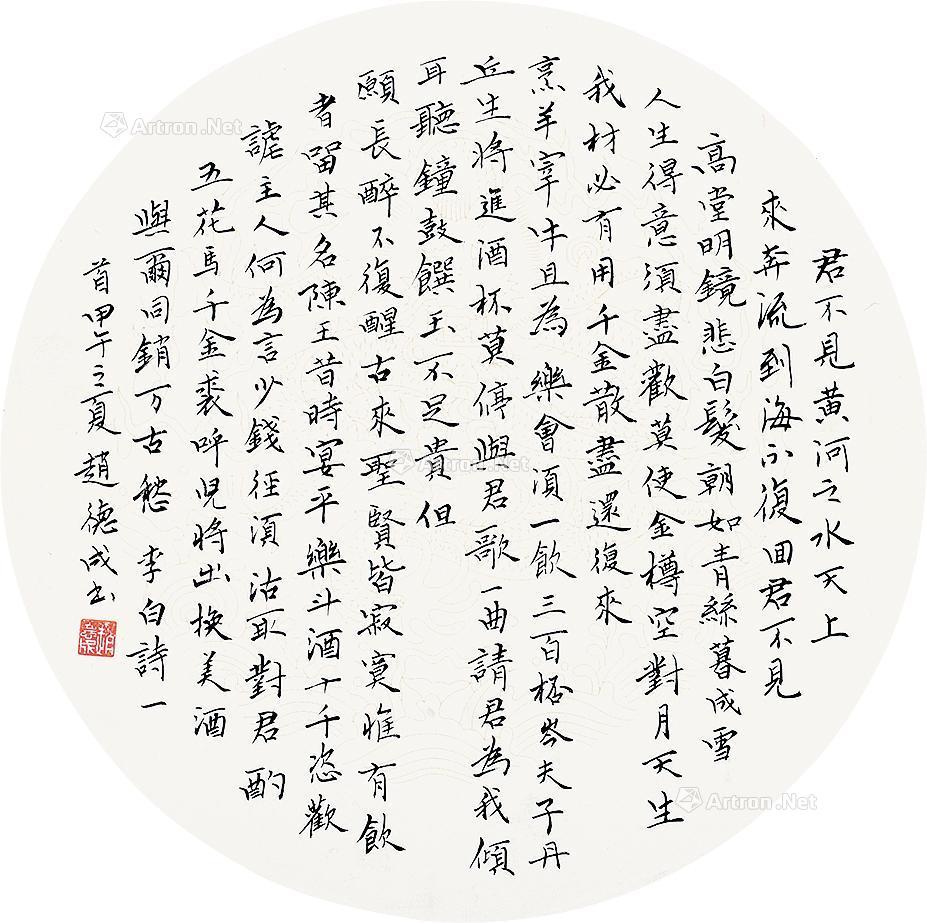 君不見黃河之水天上
來奔流到海不復回君不見
高堂明鏡悲白髮朝如青絲暮成雪
人生得意須盡歡莫使金樽空對月天生
我材必有用千金散盡還復來
烹羊宰牛且為樂會須一飲三百桮岑夫子丹
丘生將進酒杯莫停與君歌一曲請君為我傾
耳聽鐘鼓饌玉不足貴但
願長醉不復醒古來聖賢皆寂寞惟有飲
者留其名陳王昔時宴平樂斗酒十千恣歡
謔主人何為言少錢徑須沽取對君酌
五花馬千金裘呼兒將出換美酒
與爾同銷万古愁李白詩一
首甲午之夏趙德成書
Artron.Net
Artron.Net
Artron.Net